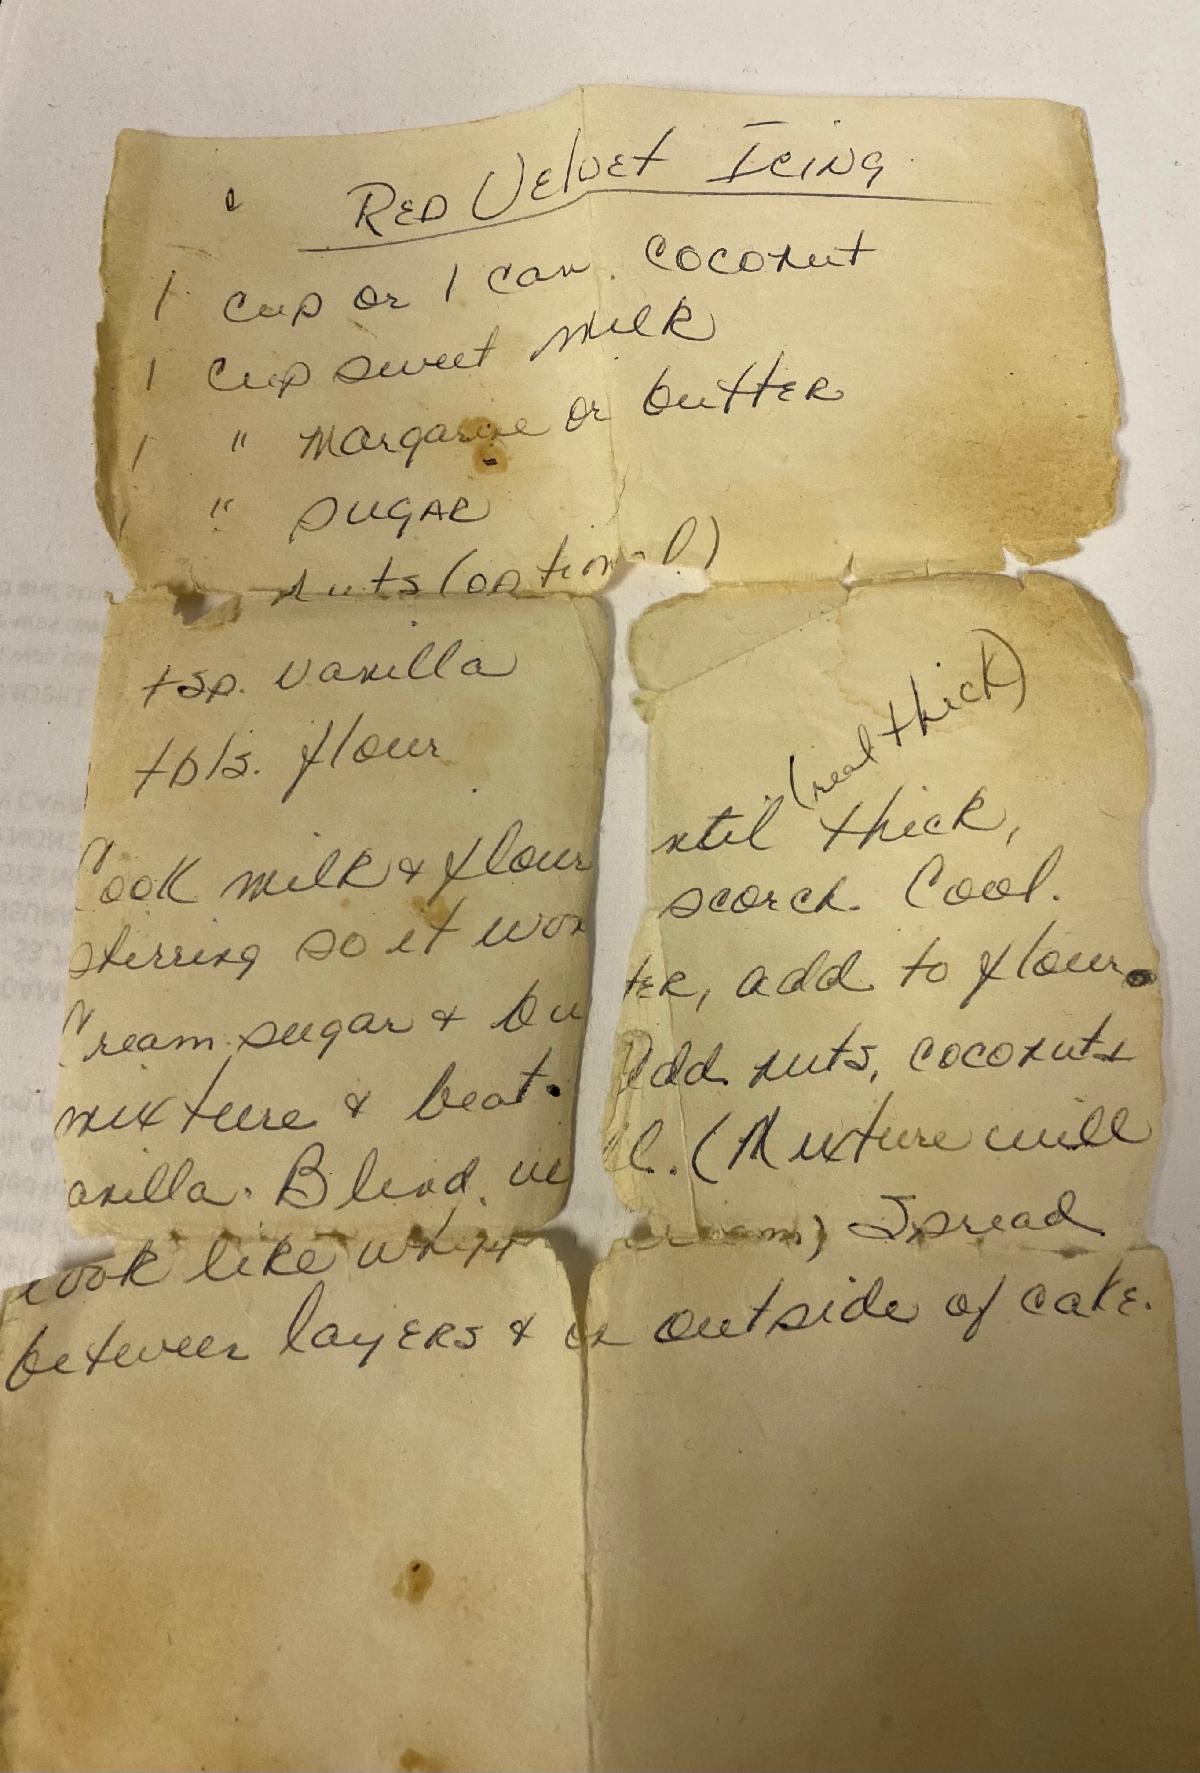 RED VELVET ICING
1 cup or 1 can coconut
1 cup sweet milk
1 " margarine or butter
1 " sugar
nuts (optional)
tsp. vanilla
tbls. flour
(real thick)
Cook milk & flour ntil thick,
stirring so it won scorch. Cool.
Cream sugar & bu ter, add to flour
mixture & beat. Add nuts, coconuts
anilla. Blend we l. (Mixture will
look like whipp cream) Spread
between layers & on outside of cake.